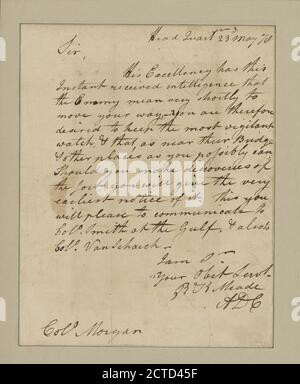 Head Quarters 23 May 78
Sir,
His Excellency has this
Instant received intelligence that
the Enemy mean very shortly to
move your way. You are therefore
desired to keep the most vigilant
watch, & that as near their Bridge
& other places as you possibly can
Should you make discoveries of
the sort, you will give the very
earliest notice of it. This you
will please to communicate to
Colo. Smith at the Gulf & also to
Colo. Van Schaick —
I am Sr.
Your Obet Servt.
R K Meade
ADC
Colo. Morgan
alamy
Image ID: 2CTD45F
www.alamy.com